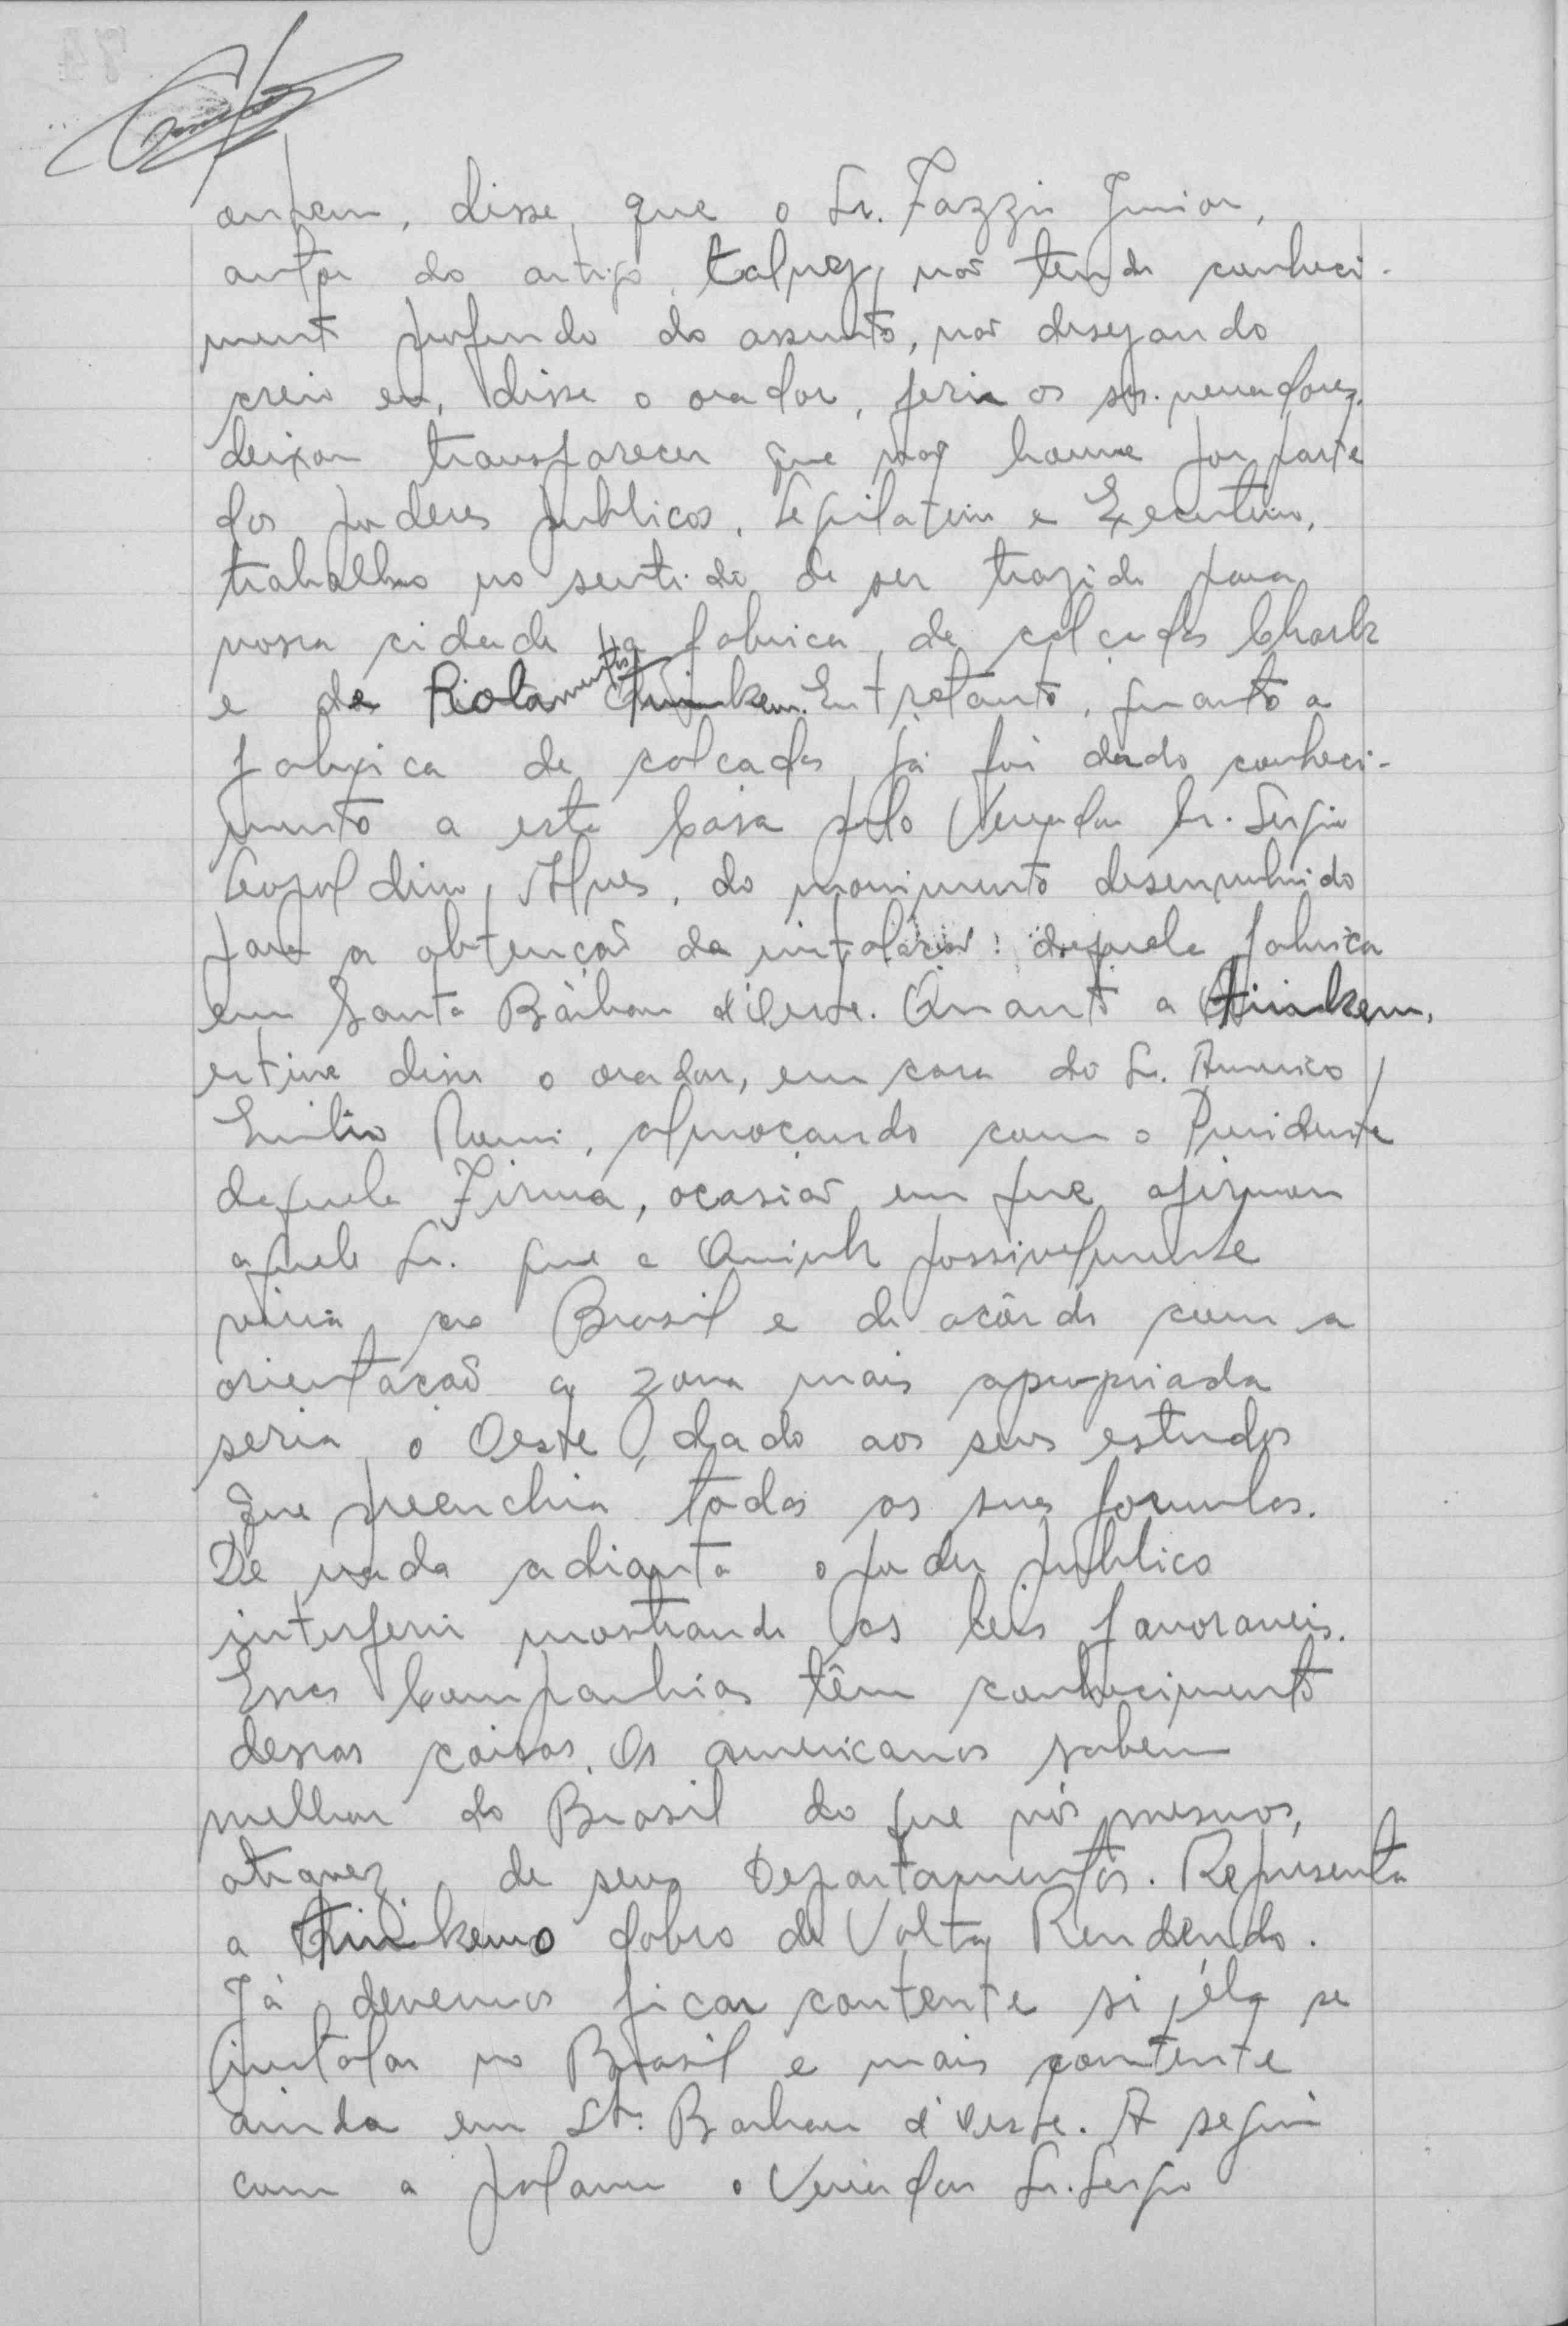 ontem, disse, que o Sr. Fazzi Junior,
autor do artigo, talvez, não tendo conheci-
mento profundo do assunto, não desejando
creio eu, disse o orador, ferir os srs. vereadores,
deixou transparecer que não houve por parte
dos poderes publicos, Legislativo e Executivo,
trabalho no sentido de ser trazido para
nossa cidade a fabrica de calçados Clark
e de Rolamentos Timken. Entretanto, quanto a
fabrica de calçados já foi dado conheci-
mento a esta Casa pelo Vereador Sr. Sergio
Leopoldino Alves, do movimento desenvolvido
para a obtenção da instalação daquela fabrica
em Santa Bárbara d'Oeste. Quanto a Timken,
estive disse o orador, em casa do Sr. Americo
Emilio Romi, almoçando com o Presidente
daquela Firma, ocasião em que afirmou
aquele Sr. que a possivelmente
viria ao Brasil e de acôrdo com a
orientação a zona mais apropriada
seria o Oeste, dado aos seus estudos
que preenchia todas as suas formulas.
De nada adianta o poder publico
interferir mostrando as leis favoraveis.
Essas Companhias têm conhecimento
dessas coisas. Os americanos sabem
melhor do Brasil do que nós mesmos,
atravez de seus Departamentos. Representa
a Timken o dobro de Volta Redonda.
Já devemos ficar contente si éla se
instalar no Brasil e mais contente
ainda em Sta. Barbara d'Oeste. A seguir
com a palavra o Vereador Sr. Sergio